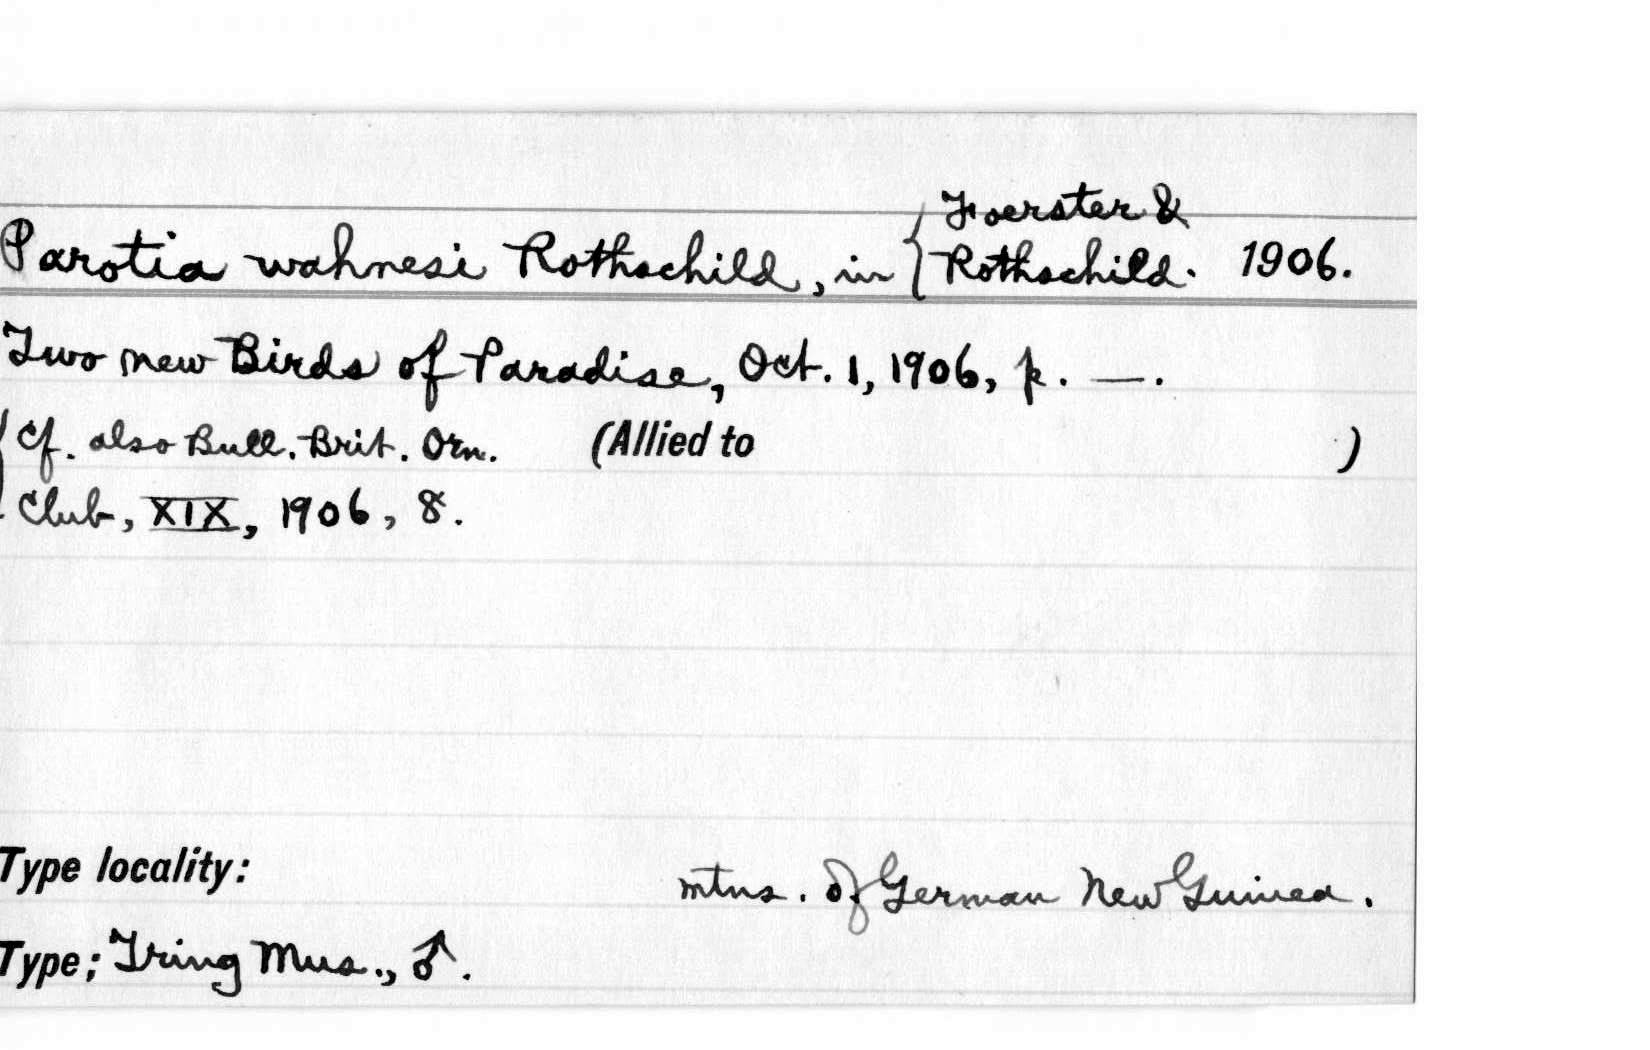 Parotia wahnesi Rothschild, in { Foerster &
Rothschild. 1906.
Two new Birds of Paradise, Oct. 1, 1906, p. —.
{ Cf. also Bull. Brit. Orn. (Allied to )
Club, XIX, 1906, 8.
Type locality: mtns. of German New Guinea.
Type; Tring Mus., ♂.